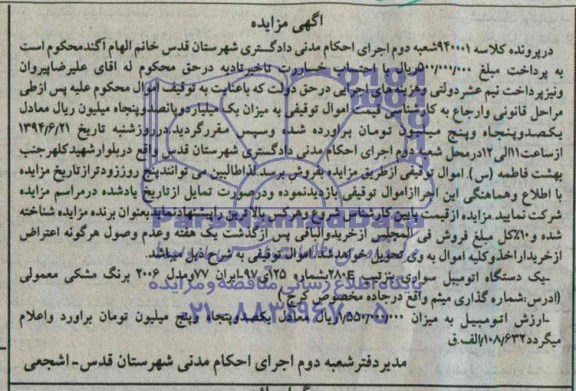 آگهی مزایده
درپرونده کلاسه ۹۴۰۰۰۱شعبه دوم اجرای احکام مدنی دادگستری شهرستان قدس خانم الهام آگندمحکوم است
به پرداخت مبلغ ۵۰۰/۰۰۰/۰۰۰ریال با احتساب خساررت تاخیرتادیه درحق محکوم له اقای علیرضاپیروان
ونیزپرداخت نیم عشردولتی وهزینه های اجرایی درحق دولت که باعنایت به توقیف اموال محکوم علیه پس ازطی
مراحل قانونی وارجاع به کارشناس قیمت اموال توقیفی به میزان یک میلیاردوپانصدوپنجاه میلیون ریال معادل
یکصدوپنجاه وپنج میلیون تومان براورده شده وسپس مقررگردید درروزشنبه تاریخ ۱۳۹۴/۶/۲۱
ازساعت۱۱الی۱۲درمحل شعبه دوم اجرای احکام مدنی دادگستری شهرستان قدس واقع دربلوارشهیدکلهرجنب
بهشت فاطمه (س) اموال توقیفی ازطریق مزایده بفروش برسد.لذاطالبین می توانندپنج روززودترازتاریخ مزایده
با اطلاع وهماهنگی این اجراازاموال توقیفی بازدیدنموده ودرصورت تمایل ازتاریخ یادشده درمراسم مزایده
شرکت نمایید.مزایده ازقیمت پایین کارشناس شروع وهرکس بالاترین راپیشنهادنمایدبعنوان برنده مزایده شناخته
شده و۱۰٪کل مبلغ فروش فی المجلس ازخریدوالباقی پس ازگذشت یک هفته وعدم وصول هرگونه اعتراض
ازخریداراخذوکلیه اموال به وی تحویل خواهدشد.اموال توقیفی به شرح ذیل میباشد
-یک دستگاه اتومبیل سواری بنزتیپ ۲۸۰E بشماره ۱۲۵ی۹۷-ایران ۷۷ومدل ۲۰۰۶ برنگ مشکی معمولی
(ادرس:شماره گذاری میثم واقع درجاده مخصوص کرج)
-ارزش اتومبیل به میزان ۱/۵۵۰/۰۰۰/۰۰۰ریال معادل یکصدوپنجاه وپنج میلیون تومان براورد واعلام
میگردد۱۰۸/۶۳۲/الف.ق
مدیردفترشعبه دوم اجرای احکام مدنی شهرستان قدس-اشجعی
پایگاه اطلاع رسانی مناقصه و مزایده
۰۲۱-۸۸۳۴۹۶۷۰-۵